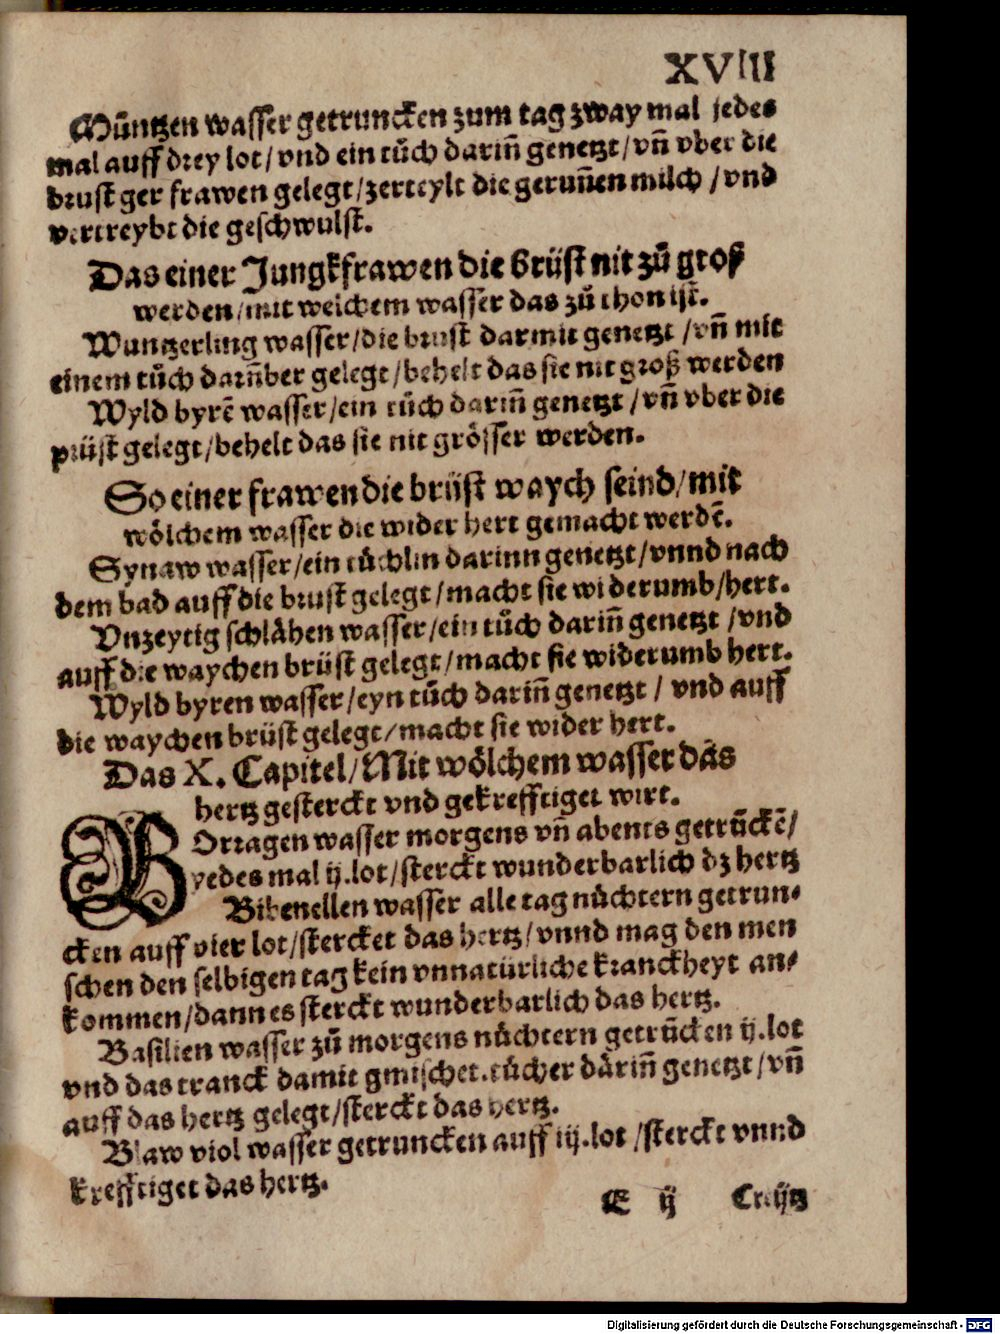 XVIII
Můntzen wasser getruncken zum tag zway mal jedes
mal auff drey lot/ vnd ein tůch darin̄ genetzt/ vn̄ vber die
brust ger frawen gelegt/ zerteylt die gerun̄en milch/ vnd
vertreybt die geschwulst.
Das einer Jungkfrawen die brüst nit zů groß
werden/ mit welchem wasser das zů thon ist.
Wuntzerling wasser/ die brust darmit genetzt/ vn̄ mit
einem tůch darüber gelegt/ behelt das sie nit groß werden
Wyld byrē wasser/ ein tůch darin̄ genetzt/ vn̄ vber die
prüst gelegt/ behelt das sie nit grösser werden.
So einer frawen die brüst waych seind/ mit
wölchem wasser die wider hert gemacht werdē.
Synaw wasser/ ein tůchlin darinn genetzt/ vnnd nach
dem bad auff die brust gelegt/ macht sie widerumb/ hert.
Vnzeytig schlåhen wasser/ ein tůch darin̄ genetzt/ vnd
auff die waychen brüst gelegt/ macht sie widerumb hert.
Wyld byren wasser/ eyn tůch darin̄ genetzt/ vnd auff
die waychen brüst gelegt/ macht sie wider hert.
Das X. Capitel/ Mit wölchem wasser das
hertz gesterckt vnd gekrefftiget wirt.
BOrragen wasser morgens vn̄ abents getrūckē/
yedes mal ij.lot/ sterckt wunderbarlich dz hertz
Bibenellen wasser alle tag nůchtern getrun-
cken auff vier lot/ stercket das hertz/ vnnd mag den men
schen den selbigen tag kein vnnatürliche kranckheyt an-
kommen/ dann es sterckt wunderbarlich das hertz.
Basilien wasser zů morgens nůchtern getrūcken ij.lot
vnd das tranck damit gmischet. tůcher dårin̄ genetzt/ vn̄
auff das hertz gelegt/ sterckt das hertz.
Blaw viol wasser getruncken auff iij.lot/ sterckt vnnd
krefftiget das hertz.
E ij
Digitalisierung gefördert durch die Deutsche Forschungsgemeinschaft - DFG